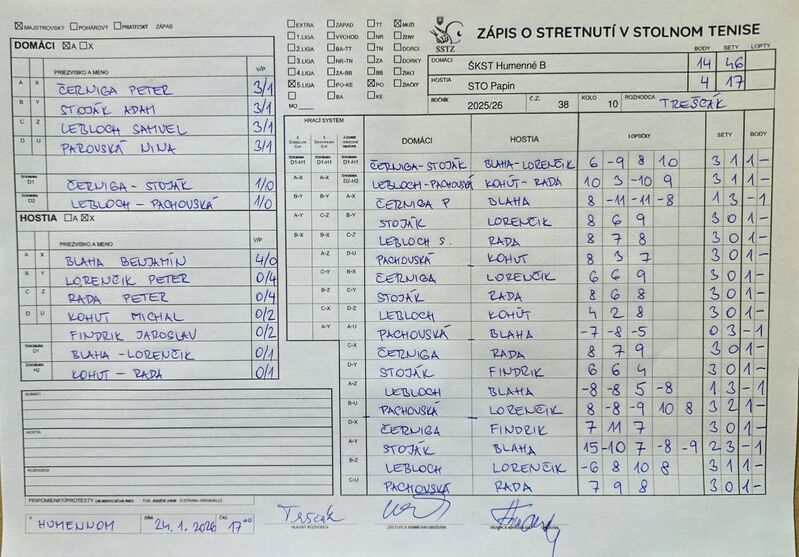 MAJSTROVSKÝ POHÁROVÝ PRIATEĽSKÝ ZÁPAS
DOMÁCI A X
PRIEZVISKO A MENO V/P
A X ČERNIGA PETER 3/1
B Y STOJÁK ADAM 3/1
C Z LEBLOCH SAMUEL 3/1
D U PAROVSKÁ NINA 3/1
D1 ČERNIGA - STOJÁK 1/0
D2 LEBLOCH - PACHOVSKÁ 1/0
HOSTIA A X
PRIEZVISKO A MENO V/P
A X BLAHA BENJAMÍN 4/0
B Y LORENČIK PETER 0/4
C Z RADA PETER 0/4
D U KOHUT MICHAL 0/2
FINDRIK JAROSLAV 0/2
BLAHA - LORENČIK 0/1
H2 KOHUT - RADA 0/1
DOMÁCI
HOSTIA
ROZHODCA
PRIPOMIENKY/PROTESTY
V HUMENNOM DŇA 24.1.2026 ČAS 17 00
EXTRA ZÁPAD TT MUŽI
1.LIGA VÝCHOD NR ŽENY
2.LIGA BA-TT TN DORCI
3.LIGA NR-TN ZA DORKY
4.LIGA ZA-BB BB ŽIACI
5.LIGA PO-KE PO ŽIAČKY
MO BA KE
SSTZ
ZÁPIS O STRETNUTÍ V STOLNOM TENISE
BODY SETY LOPTY
DOMÁCI ŠKST Humenné B 14 46
HOSTIA STO Papín 4 17
ROČNÍK 2025/26 Č.Z. 38 KOLO 10 ROZHODCA TREŠČÁK
HRACÍ SYSTÉM DOMÁCI HOSTIA LOPTIČKY SETY BODY
D1-H1 D1-H1 D1-H1 ČERNIGA-STOJÁK BLAHA-LORENČIK 6 -9 8 10 3 1 1 -
A-X A-X D2-H2 LEBLOCH-PACHOVSKÁ KOHÚT-RADA 10 3 -10 9 3 1 1 -
B-Y B-Y A-X ČERNIGA P BLAHA 8 -11 -11 -8 1 3 - 1
A-Y C-Z B-Y STOJÁK LORENČIK 8 6 9 3 0 1 -
B-X B-X C-Z LEBLOCH S. RADA 8 7 8 3 0 1 -
A-Z D-U PACHOVSKÁ KOHUT 8 3 7 3 0 1 -
C-Y B-X ČERNIGA LORENČIK 6 6 9 3 0 1 -
B-Z C-Y STOJÁK RADA 8 6 8 3 0 1 -
C-X D-Z LEBLOCH KOHÚT 4 2 8 3 0 1 -
A-Y A-U PACHOVSKÁ BLAHA -7 -8 -5 0 3 - 1
C-X ČERNIGA RADA 8 7 9 3 0 1 -
D-Y STOJÁK FINDRIK 6 6 4 3 0 1 -
A-Z LEBLOCH BLAHA -8 -8 5 -8 1 3 - 1
B-U PACHOVSKÁ LORENČIK 8 -8 -9 10 8 3 2 1 -
D-X ČERNIGA FINDRIK 7 11 7 3 0 1 -
A-Y STOJÁK BLAHA 15 -10 7 -8 -9 2 3 - 1
B-Z LEBLOCH LORENČIK -6 8 10 8 3 1 1 -
C-U PACHOVSKÁ RADA 7 9 8 3 0 1 -
Treščák
HLAVNÝ ROZHODCA